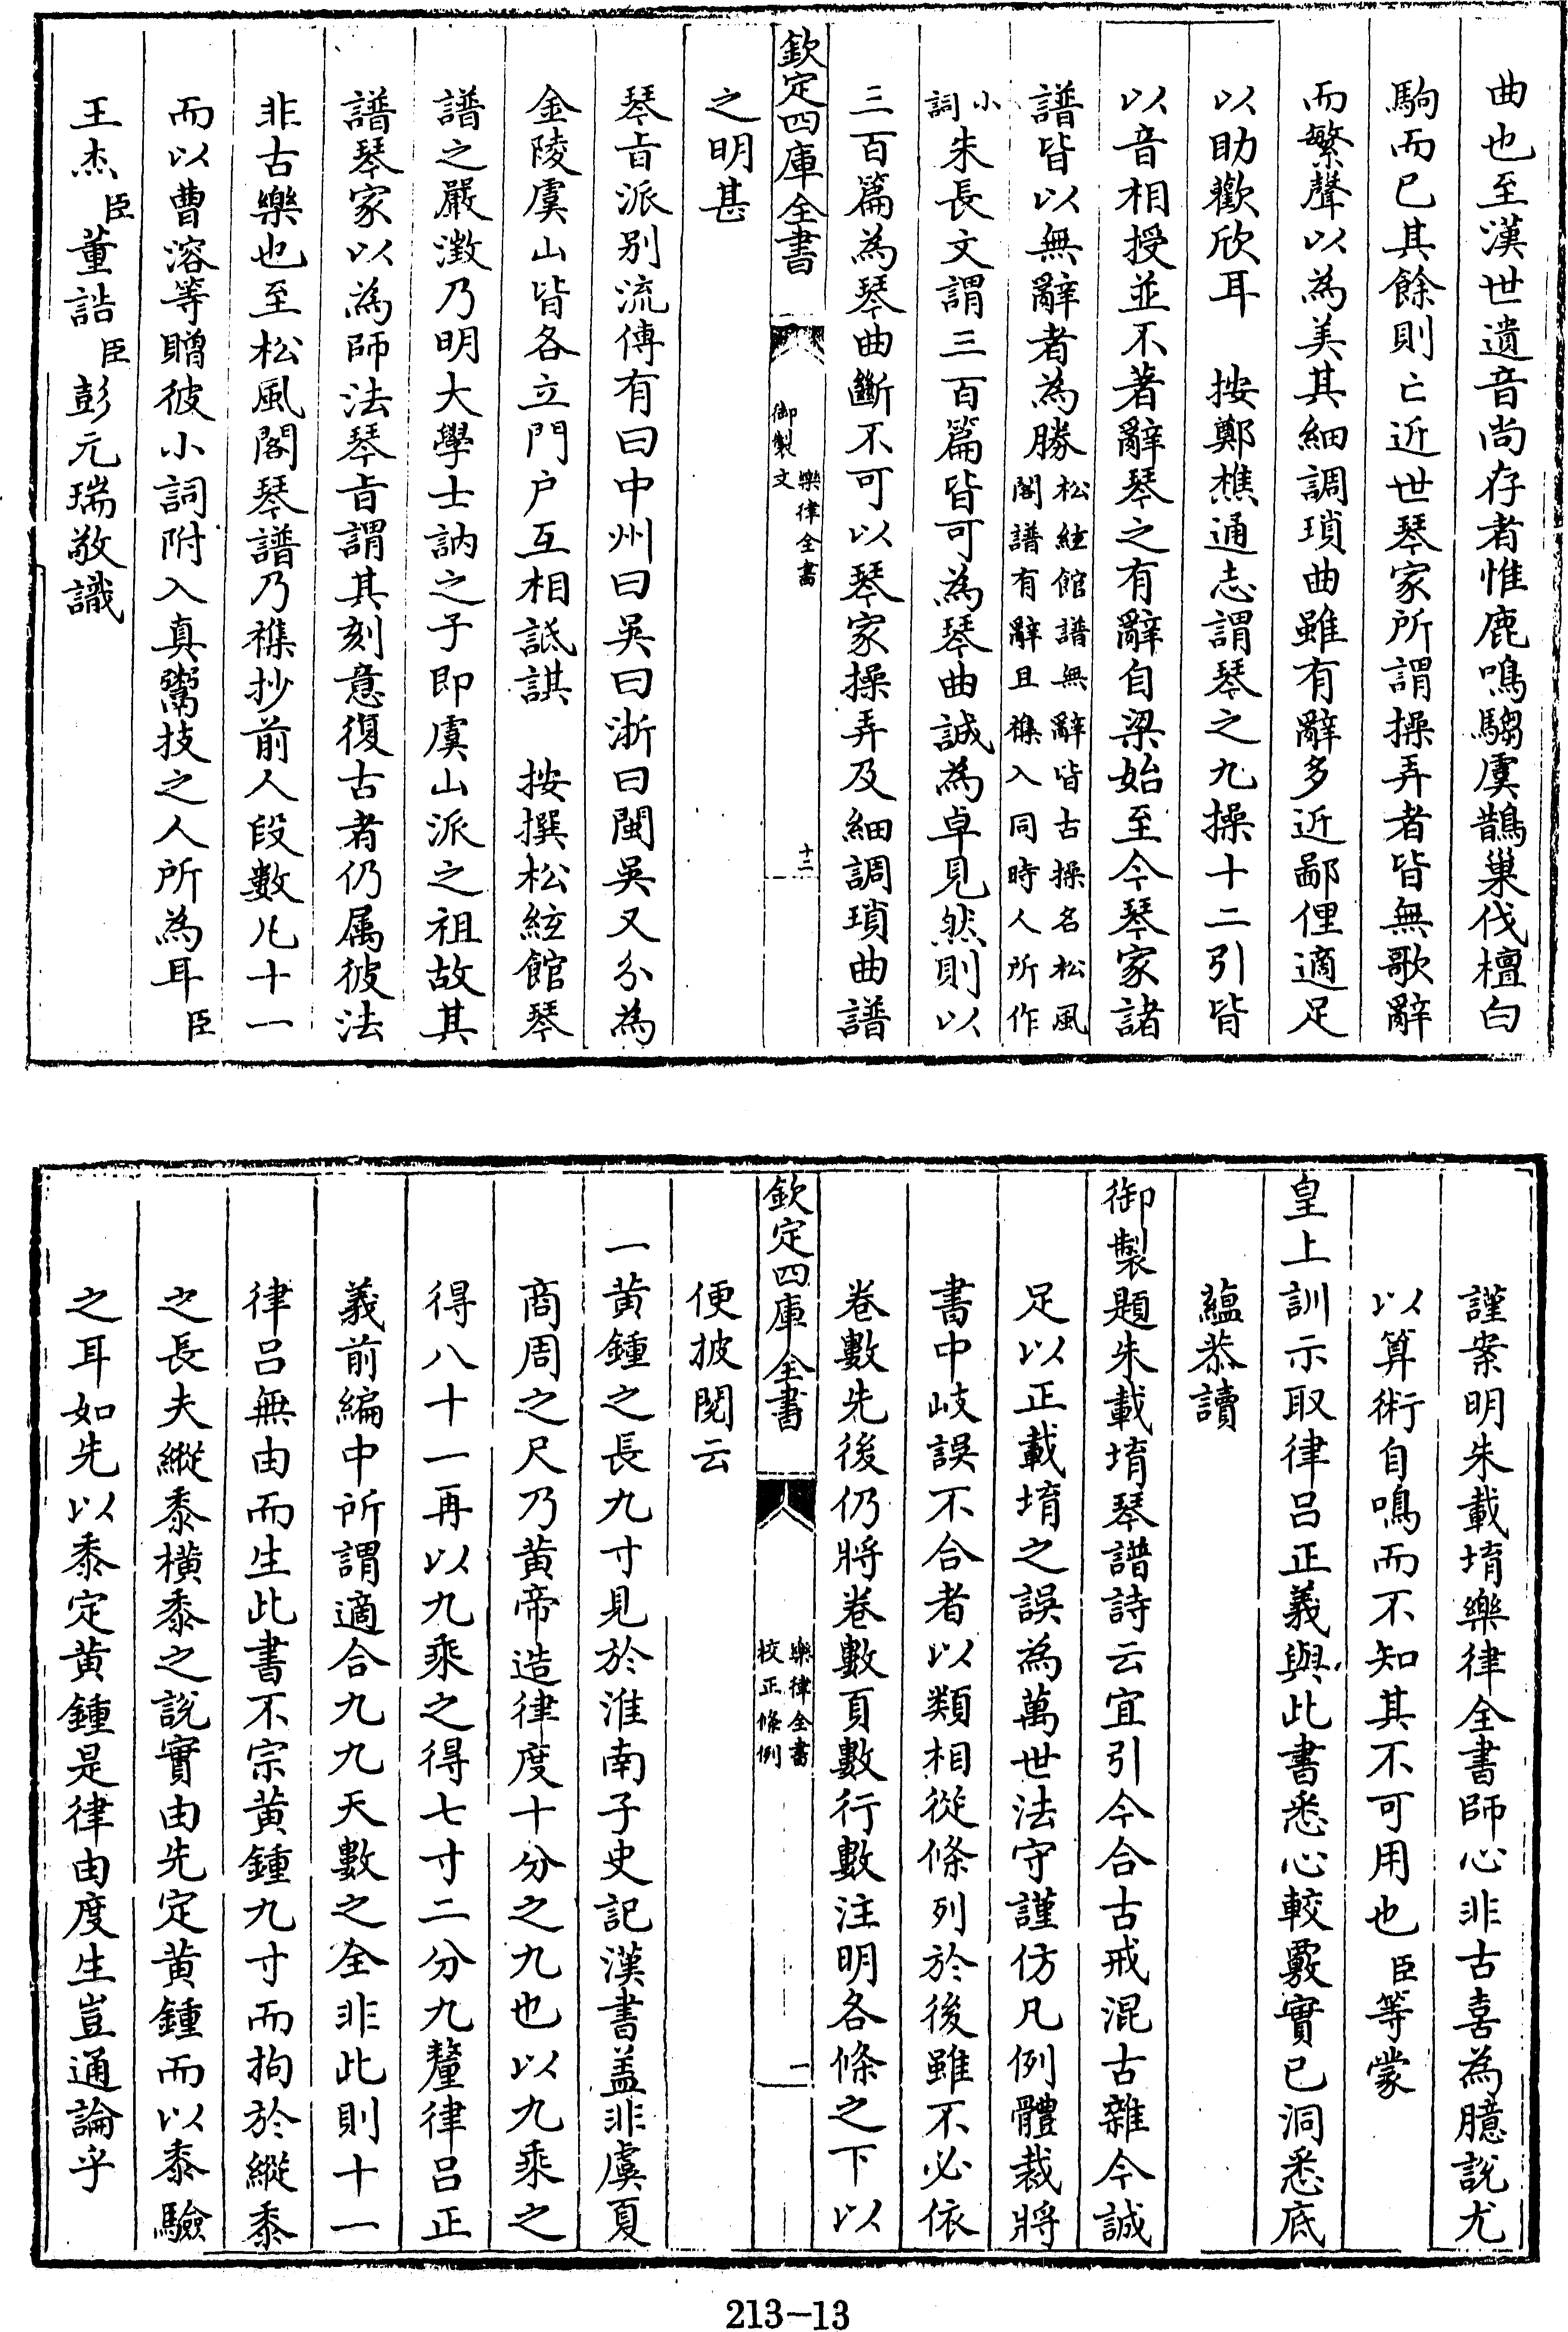 曲也至漢世遺音尚存者惟鹿鳴騶虞鵲巢伐檀白
駒而已其餘則亡近世琴家所謂操弄者皆無歌辭
而繁聲以為美其細調瑣曲雖有辭多近鄙俚適足
以助歡欣耳　按鄭樵通志謂琴之九操十二引皆
以音相授並不著辭琴之有辭自梁始至今琴家諸
譜皆以無辭者為勝松絃館譜無辭皆古操名松風閣譜有辭且襍入同時人所作
小詞朱長文謂三百篇皆可為琴曲誠為卓見然則以
三百篇為琴曲斷不可以琴家操弄及細調瑣曲譜
欽定四庫全書　御製文　樂律全書　十二
之明甚
琴㫖派別流傳有曰中州曰吳曰浙曰閩吳又分為
金陵虞山皆各立門户互相詆諆　按撰松絃館琴
譜之嚴澂乃明大學士訥之子即虞山派之祖故其
譜琴家以為師法琴㫖謂其刻意復古者仍属彼法
非古樂也至松風閣琴譜乃襍抄前人段數凡十一
而以曹溶等贈彼小詞附入真鬻技之人所為耳臣
王杰臣董誥臣彭元瑞敬識
謹案明朱載堉樂律全書師心非古喜為臆說尤
以算術自鳴而不知其不可用也臣等蒙
皇上訓示取律吕正義與此書悉心較覈實已洞悉底
蘊恭讀
御製題朱載堉琴譜詩云宜引今合古戒混古雜今誠
足以正載堉之誤為萬世法守謹仿凡例體裁將
書中岐誤不合者以類相從條列於後雖不必依
卷數先後仍將卷數頁數行數注明各條之下以
欽定四庫全書　樂律全書　校正條例　一
便披閱云
一黄鍾之長九寸見於淮南子史記漢書盖非虞夏
商周之尺乃黄帝造律度十分之九也以九乘之
得八十一再以九乘之得七寸二分九釐律吕正
義前編中所謂適合九九天數之全非此則十一
律吕無由而生此書不宗黄鍾九寸而拘於縱黍
之長夫縱黍横黍之說實由先定黄鍾而以黍驗
之耳如先以黍定黄鍾是律由度生豈通論乎
213-13